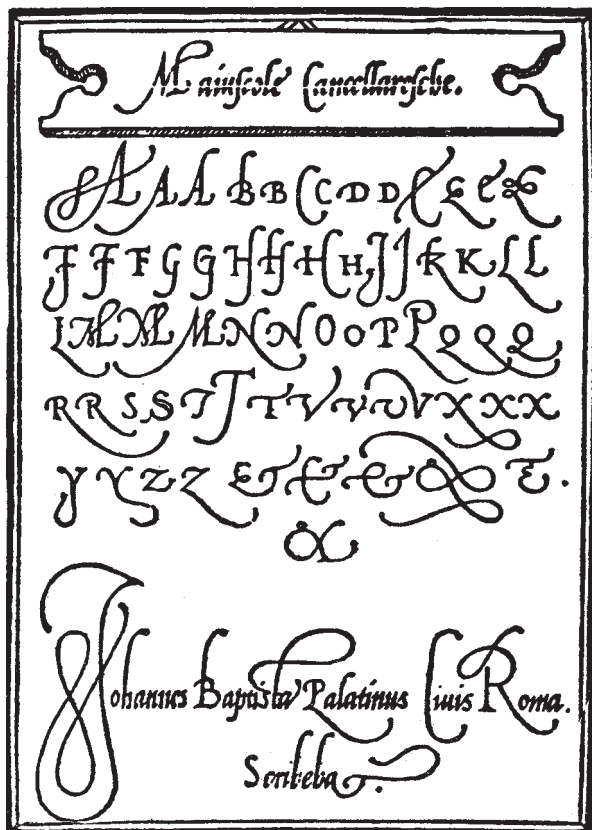 Maiuſcole Cancellareſche.
A A A B B C C D D E E E E
F F F G G H H H H J J K K L L
L M M M N N O O P P Q Q Q
R R S S S T T T V V V V X X X
Y Y Z Z & & & & &.
&
Johannes Baptista Palatinus Ciuis Roma.
Scribebat.